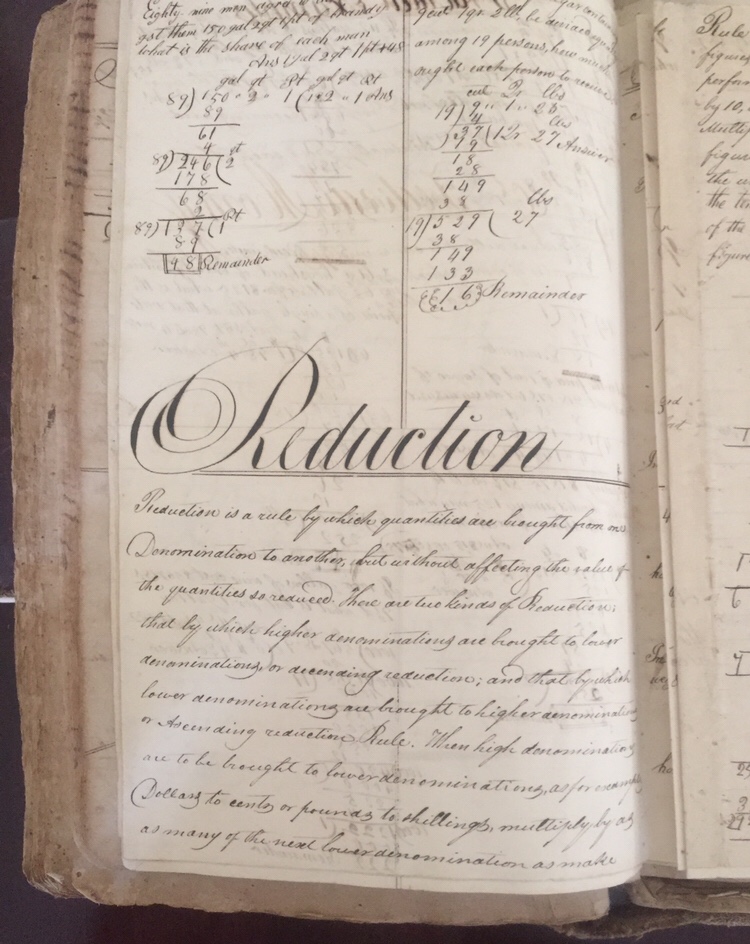 Eighty nine men agra
gst them 150 gal 2 qt 1 pt of brandy
what is the share of each man
Ans 1 gal 2 qt 1 pt + 48
gal qt Pt gal qt Pt
89) 150 " 2 " 1 (1 " 2 " 1 Ans
89
61
4
89) 246 ( 2 qt
178
68
2
89) 137 ( 1 Pt
89
48 Remainder
1 qr 2 lb, be
among 19 persons, how much
ought each person to receive
cwt Qr lbs
19) 9 " 1 " 25
4 lbs
) 37 ( 1 Qr 27 Answer
19
18
28
149
38
19) 529 ( 27 lbs
38
149
133
16 Remainder
Reduction
Reduction is a rule by which quantities are brought from one
Denomination to another, but without affecting the value of
the quantities so reduced. There are two kinds of Reduction;
that by which higher denominations are brought to lower
denominations, or decending reduction; and that by which
lower denominations are brought to higher denominations
or Ascending reduction Rule. When high denominations
are to be brought to lower denominations, as for example
Dollars to cents, or pounds to shillings, multiply by as
as many of the next lower denomination as make
Rule
figures
perform
by 10,
Multip
figur
the
the ten
of the
figur